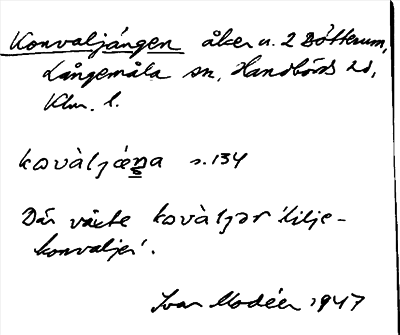 Konvaljängen åker u. 2 Bötterum,
Långemåla sn, Handbörds hd,
Klm. l.
kovàljæŋa s. 134
Där växte kovàljər 'lilje-
konvaljer'.
Ivar Modéer 1947